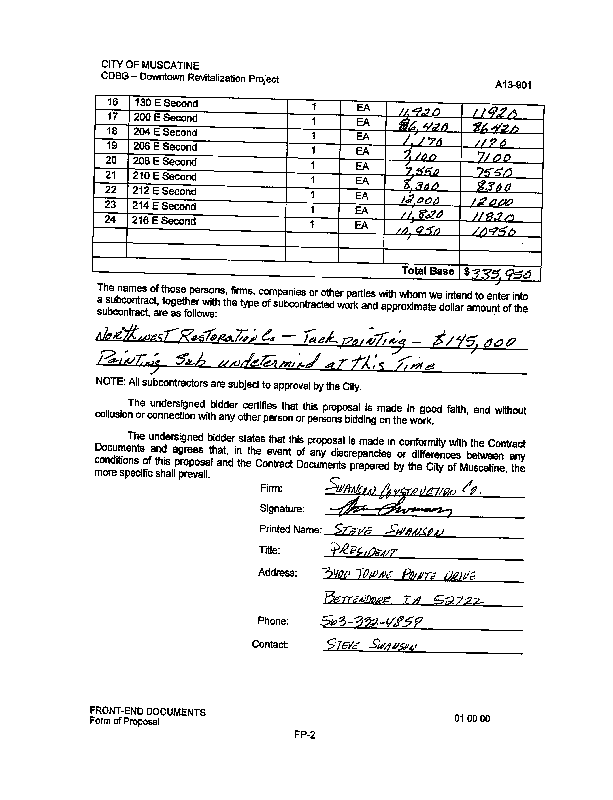 CITY OF MUSCATINE
CDBG – Downtown Revitalization Project
A13-901
16 130 E Second 1 EA 11,920 11920
17 200 E Second 1 EA 86,420 86420
18 204 E Second 1 EA 1,170 1170
19 206 E Second 1 EA 7,100 7100
20 208 E Second 1 EA 7,550 7550
21 210 E Second 1 EA 8,300 8300
22 212 E Second 1 EA 12,000 12000
23 214 E Second 1 EA 11,820 11820
24 216 E Second 1 EA 10,950 10950
Total Base $335,950
The names of those persons, firms, companies or other parties with whom we intend to enter into
a subcontract, together with the type of subcontracted work and approximate dollar amount of the
subcontract, are as follows:
NORTHWEST RESTORATION CO – Tuck pointing – $145,000
Painting Sub undetermind at This Time
NOTE: All subcontractors are subject to approval by the City.
The undersigned bidder certifies that this proposal is made in good faith, and without
collusion or connection with any other person or persons bidding on the work.
The undersigned bidder states that this proposal is made in conformity with the Contract
Documents and agrees that, in the event of any discrepancies or differences between any
conditions of this proposal and the Contract Documents prepared by the City of Muscatine, the
more specific shall prevail.
Firm: SWANSON CONSTRUCTION CO.
Signature:
Printed Name: STEVE SWANSON
Title: PRESIDENT
Address: 3400 TOWNE POINTE DRIVE
BETTENDORF IA 52722
Phone: 563-332-4859
Contact: STEVE SWANSON
FRONT-END DOCUMENTS
Form of Proposal
01 00 00
FP-2